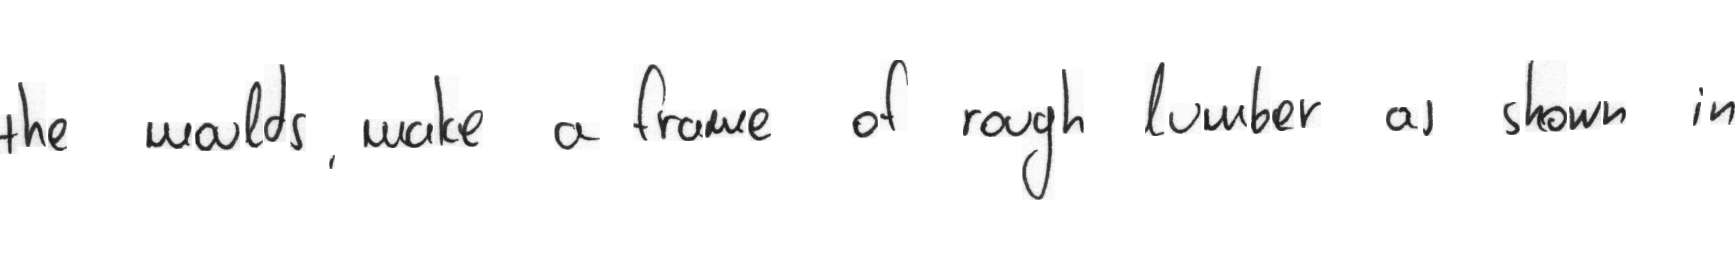 the moulds, make a frame of rough lumber as shown in